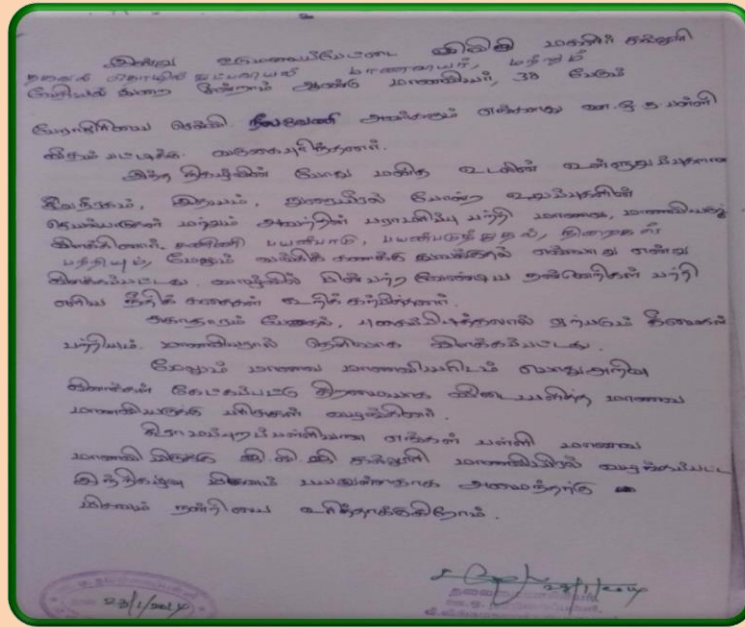 இன்று உடுமலைப்பேட்டை ஜிவிஜி மகளிர் கல்லூரி
தகவல் தொழில் நுட்பவியல் மாணவியர், மற்றும்
மூன்றாம் ஆண்டு மாணவியர், 38 பேரும்
பேராசிரியை செல்வி. நீலவேணி அவர்களும் எங்களது ஊ.ஒ.து.பள்ளி
வருகைபுரிந்தனர்.
இந்த நிகழ்வின் போது மனித உடலின் உள்ளுறுப்புகளான
சிறுநீரகம், இதயம், நுரையீரல் போன்ற உறுப்புகளின்
செயல்பாடுகள் மற்றும் அவற்றின் பராமரிப்பு பற்றி மாணவ, மாணவியருக்கு
விளக்கினார். கணினி பயன்பாடு, பயன்படுத்துதல், திறைகள்
பற்றியும், மேலும் வங்கிக் கணக்கு துவக்குதல் எவ்வாறு என்று
விளக்கப்பட்டது. வாழ்வில் பின்பற்ற வேண்டிய நன்னெறிகள் பற்றி
எளிய நீதிக் கதைகள் கூறிக் கற்பித்தனர்.
சுகாதாரம் பேணல், புகைப்பிடித்தலால் ஏற்படும் தீமைகள்
பற்றியும் மாணவியரால் தெளிவாக விளக்கப்பட்டது.
மேலும் மாணவ மாணவியரிடம் பொதுஅறிவு
வினாக்கள் கேட்கப்பட்டு திறமையாக விடையளித்த மாணவ
மாணவியருக்கு பரிசுகள் வழங்கினர்.
கிராமப்புறப்பள்ளியான எங்கள் பள்ளி மாணவ
மாணவியருக்கு ஜி.வி.ஜி கல்லூரி மாணவியரால் வழங்கப்பட்ட
இந்நிகழ்வு மிகவும் பயனுள்ளதாக அமைந்தற்கு
மிகவும் நன்றியை உரித்தாக்குகிறோம்.
23/1/2014
23/1/2014